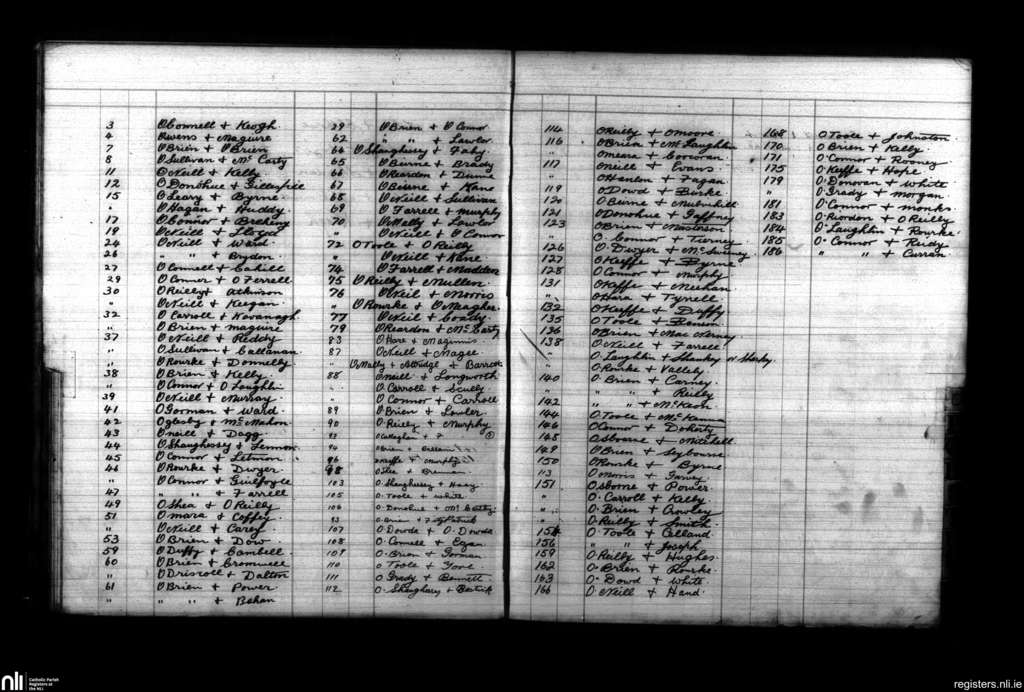 3 O'Connell & Keogh.
4 Owens & Maguire
7 O'Brien & O'Brien
8 O'Sullivan & McCarty
11 O'Neill & Kelly
12 O'Donohue & Gillespie
15 O'Leary & Byrne
" O'Hagan & Huddy
17 O'Connor &
19 O'Neill & Lloyd
24 O'Neill & Ward.
26 " " & Brydon
27 O'Connell & Cahill
29 O'Connor & O'Ferrell
30 O'Reilly & Atkinson
" O'Neill & Keegan.
32 O'Carroll & Kavanagh
" O'Brien & Maguire
37 O'Neill & Reddy
" O'Sullivan & Callanan.
" O'Rourke & Donnelly
38 O'Brien & Kelly.
" O'Connor & O'Loughlin
39 O'Neill & Murray
41 O'Gorman & Ward.
42 Oglesby & McMahon
43 O'Neill & Dagg
44 O'Shaughnessy & Lennon
45 O'Connor &
46 O'Rourke & Dwyer
" O'Connor & Guilfoyle
47 " " & Farrell
49 O'Shea & O'Reilly
51 O'Mara & Coffey
" O'Neill & Carey
53 O'Brien & Dow
59 O'Duffy & Cambell
60 O'Brien & Cromwell
" O'Driscoll & Dalton
61 O'Brien & Power
" " " & Behan
29 O'Brien & O'Connor
62 " " & Lawlor
64 O'Shaughnessy & Fahy
65 O'Beirne & Brady
66 O'Reardon & Dunne
67 O'Beirne & Kane
68 O'Neill & Sullivan
69 O'Farrell & Murphy
70 O'Mally & Lawlor
" O'Neill & O'Connor
72 O'Toole & O'Reilly
" O'Neill & Kane
74 O'Farrell & Madden
75 O'Reilly & Mullen
76 O'Neil & Morris
" O'Rourke & O'Meagher
77 O'Neil & Coady
79 O'Reardon & McCarty
83 O'Hare & Maginnis
87 O'Neill & Magee
O'Mally & Aldridge & Barrett
88 O'Neill & Longworth
O'Carroll & Scully
" O'Connor & Carroll
89 O'Brien & Lawler
90 O'Reilly & Murphy
93 O'Callaghan &
94 O'Brien &
96 O'Keeffe & Murphy
98 O'Lee & Brennan
103 O'Shaughnessy & Hoey
105 O'Toole & White
106 O'Donohue & McCartey
93 O'Brien & Fitzpatrick
107 O'Dowda & O'Dowda
108 O'Connell & Egan
109 O'Brien & Gorman
110 O'Toole & Tone
111 O'Grady & Bennett
112 O'Shaughnessy &
114 O'Reilly & O'Moore
116 O'Brien & McLaughlin
" O'Meara & Corcoran
117 O'Neill & Evans.
" O'Hanlon & Fagan
119 O'Dowd & Burke
120 O'Beirne &
121 O'Donohue & Gaffney
123 O'Brien & Masterson
" O'Connor & Tierney
126 O'Dwyer & McSweeney
127 O'Keeffe & Byrne
128 O'Connor & Murphy
131 O'Keffe & Meehan
" O'Hara & Tyrell
132 O'Keeffe & Duffy
135 O'Toole &
136 O'Brien & MacNerney
138 O'Neill & Farrell
" O'Laughlin & Sharkey or Sharky.
O'Rourke & Vallely
140 O'Brien & Carney.
" " & Reilly
142 " " & McKeon.
144 O'Toole & McKenna
146 O'Connor & Doherty
148 Osborne & Mitchell
149 O'Brien & Seybourne
150 O'Rourke & Byrne
113 O'Morris & Garvey
151 Osborne & Power
" O'Carroll & Kelly
" O'Brien & Crowley
" O'Reilly & Smith.
154 O'Toole & Celland
156 " " & Joseph
159 O'Reilly & Hughes
162 O'Brien & Rourke.
163 O'Dowd & White
166 O'Neill & Hand.
168 O'Toole & Johnston
170 O'Brien & Kelly.
171 O'Connor & Rooney
175 O'Keffe & Hope
179 O'Donovan & White
" O'Grady & Morgan
181 O'Connor & Monks.
183 O'Riordon & O'Reilly
184 O'Laughlin & Rourke.
185 O'Connor & Reidy
186 " " & Curran.
nli Catholic Parish Registers at the NLI
registers.nli.ie